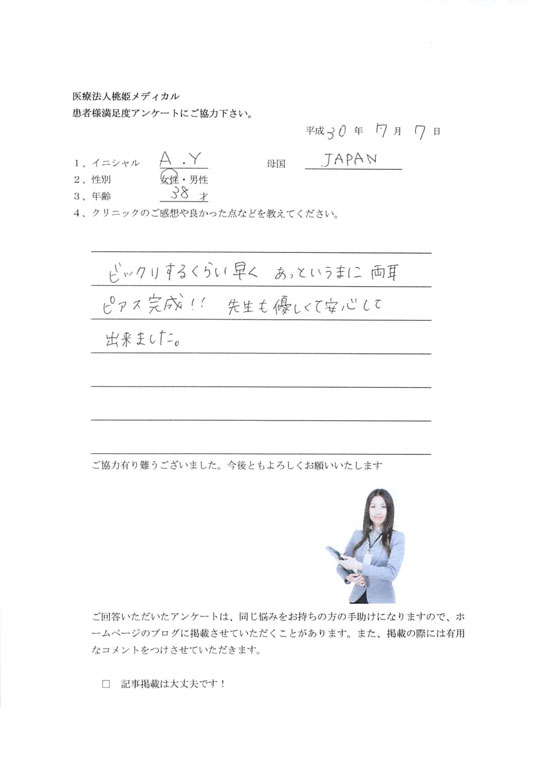 医療法人桃姫メディカル
患者様満足度アンケートにご協力下さい。
平成30年 7月 7日
1、イニシャル A.Y 母国 JAPAN
2、性別 女性・男性
3、年齢 38才
4、クリニックのご感想や良かった点などを教えてください。
ビックリするくらい早く あっというまに 両耳
ピアス完成!! 先生も優しくて安心して
出来ました。
ご協力有り難うございました。今後ともよろしくお願いいたします
ご回答いただいたアンケートは、同じ悩みをお持ちの方の手助けになりますので、ホ
ームページのブログに掲載させていただくことがあります。また、掲載の際には有用
なコメントをつけさせていただきます。
□ 記事掲載は大丈夫です！